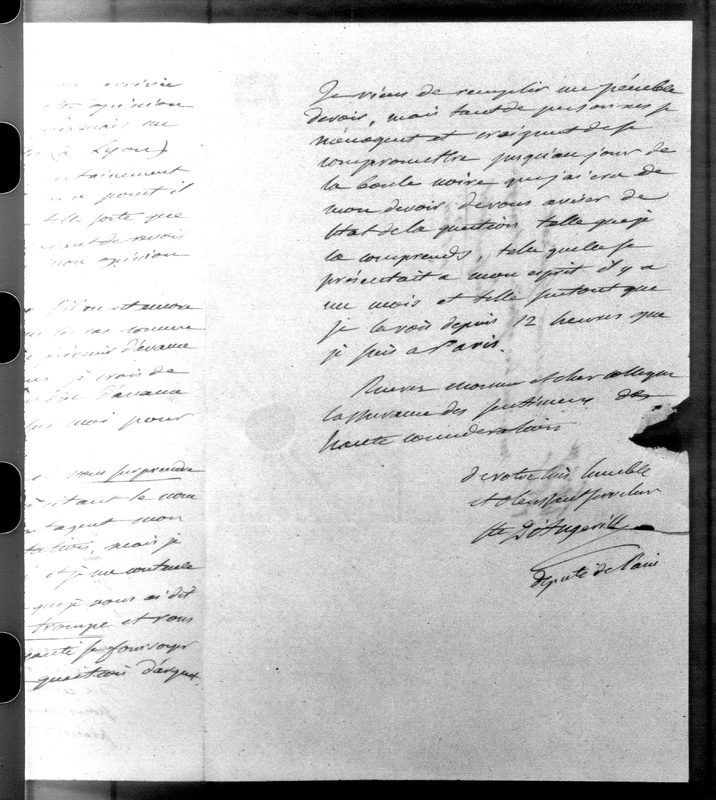 arrivée
opinion
Lyon)
certainement
point il
telle sorte que
mon opinion
encore
d'avance
je crois de
d'avance
mois pour
vous surprendre
citant le nom
mon
mais je
et je me contente
que je vous ai dit
trompé et vous
se fourvoyer
question d'argent.
Je viens de remplir un pénible
devoir, mais tant de personnes se
ménagent et craignent de se
compromettre jusqu'au jour de
la boule noire que j'ai cru de
mon devoir de vous aviser de
l'état de la question telle que je
la comprends, telle qu'elle se
présentait a mon esprit il y a
un mois et telle surtout que
je la vois depuis 12 heures que
je suis a Paris.
Recevez monsieur et cher collegue
l'assurance des sentimens de
haute consideration
de votre très humble
et obeissant serviteur
Cte D'Angeville
député de l'ain